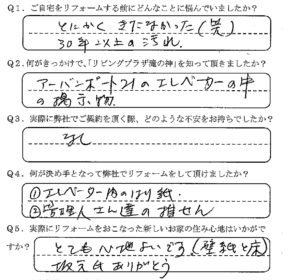 Q1. ご自宅をリフォームする前にどんなことに悩んでいましたか?
とにかく きたなかった(笑)
30年以上の汚れ.
Q2. 何がきっかけで、「リビングプラザ滝の神」を知って頂きましたか?
アーバンポート21のエレベーターの中
の掲示物.
Q3. 実際に弊社でご契約を頂く際、どのような不安をお持ちでしたか?
なし
Q4. 何が決め手となって弊社でリフォームをして頂けましたか?
①エレベーター内のはり紙.
②管理人さん達の推せん
Q5. 実際にリフォームをおこなった新しいお家の住み心地はいかがで
すか? とても心地よいです(壁紙と床)
ありがとう